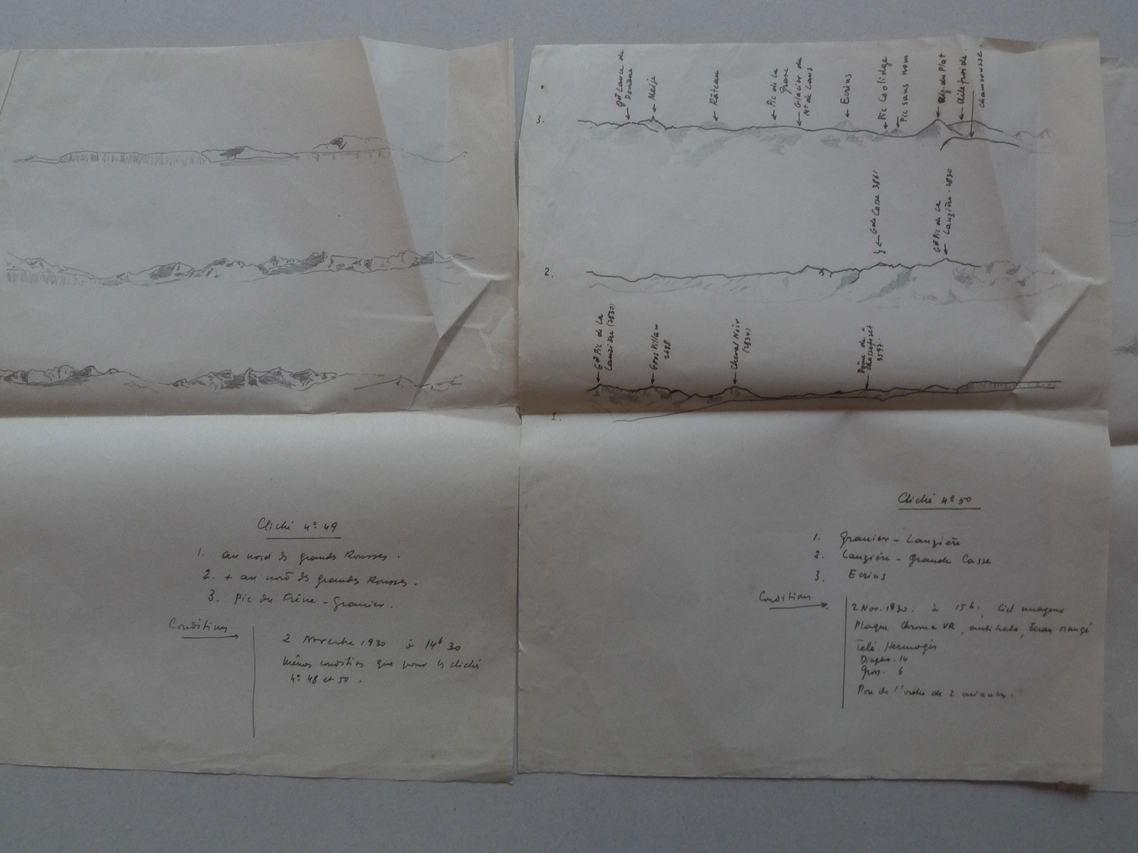 Cliché n° 49
1. au nord des grands Rousses.
2. + au nord des grands Rousses.
3. Pic du Frêne - Granier.
Conditions
2 Novembre 1930 à 14h 30
Mêmes conditions que pour les clichés
n° 48 et 50.
3.
Gd Lance de
Domène
Meije
Râteau
Pic de la
Grave
Glacier du
Mt de Lans
Ecrins
Pic Coolidge
Pic sans nom
Aig. du Plat
Ailefroide
Chamrousse
2.
Gde Casse 3861
Gd Pic de la
Lauzière
1.
Gd Pic de la
Lauzière
Gros Villan
Cheval Noir
Dôme de
Chasseforêt
3597
Cliché n° 50
1. Granier - Lauzière
2. Lauzière - Grande Casse
3. Ecrins
Conditions
2 Nov. 1930. à 15h, Ciel nuageux
Plaque Chroma VR, antihalo, Écran orangé
Télé. Hermagis
Diaphr. 14
Gross. 6
Pose de l'ordre de 2 minutes.